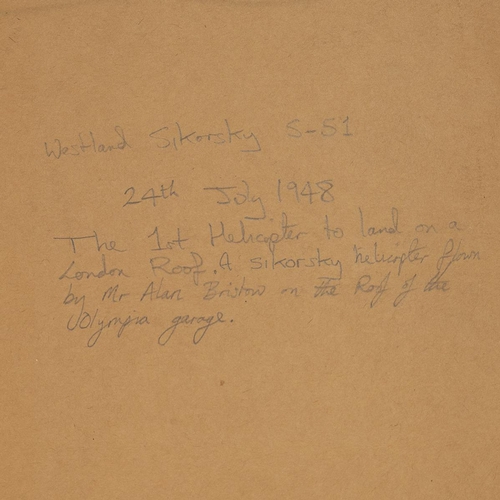 Westland Sikorsky S-51
24th July 1948
The 1st Helicopter to land on a
London Roof. A Sikorsky helicopter flown
by Mr Alan Bristow on the Roof of the
Olympia garage.